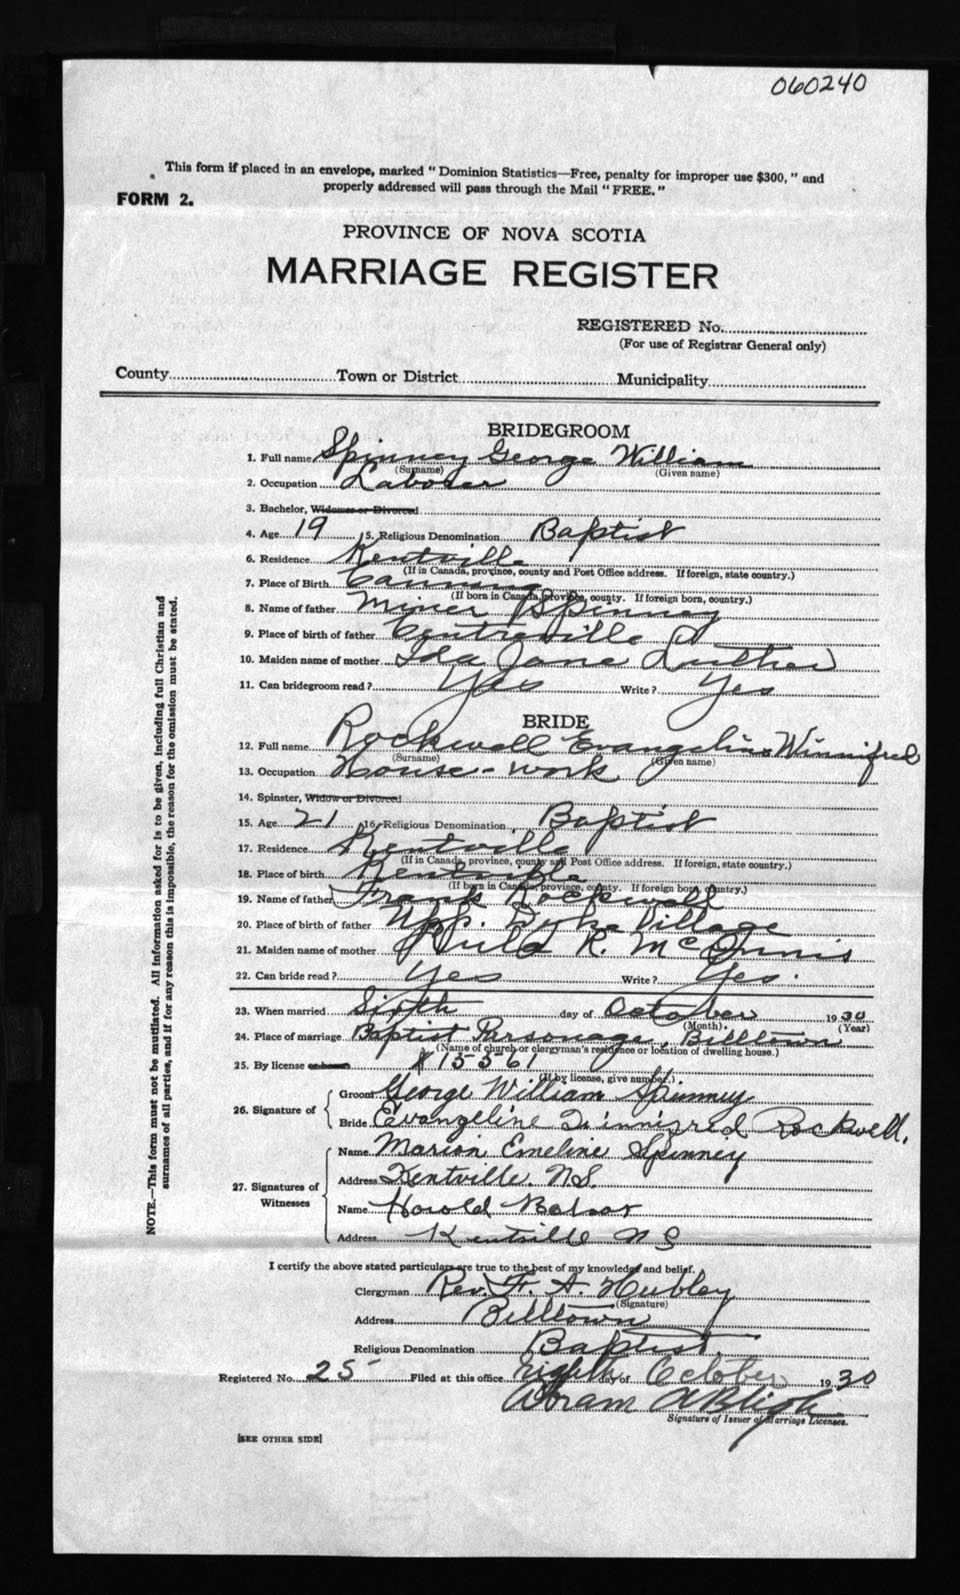 060240
This form if placed in an envelope, marked " Dominion Statistics—Free, penalty for improper use $300, " and
properly addressed will pass through the Mail " FREE. "
FORM 2.
PROVINCE OF NOVA SCOTIA
MARRIAGE REGISTER
REGISTERED No.
(For use of Registrar General only)
County Town or District Municipality
BRIDEGROOM
1. Full name Spinney George William
(Surname) (Given name)
2. Occupation Laborer
3. Bachelor, Widower or Divorced
4. Age 19 5. Religious Denomination Baptist
6. Residence Kentville
(If in Canada, province, county and Post Office address. If foreign, state country.)
7. Place of Birth Canning
(If born in Canada, province, county. If foreign born, country.)
8. Name of father Miner Spinney
9. Place of birth of father Centreville
10. Maiden name of mother Ida Jane Luther
11. Can bridegroom read? Yes Write? Yes
BRIDE
12. Full name Rockwell Evangeline Winnifred
(Surname) (Given name)
13. Occupation House-work
14. Spinster, Widow or Divorced
15. Age 21 16. Religious Denomination Baptist
17. Residence Kentville
(If in Canada, province, county and Post Office address. If foreign, state country.)
18. Place of birth Kentville
(If born in Canada, province, county. If foreign born, country.)
19. Name of father Frank Rockwell
20. Place of birth of father Upp. Dyke Village
21. Maiden name of mother R. McInnis
22. Can bride read? Yes Write? Yes.
23. When married Sixth day of October 1930
(Month). (Year)
24. Place of marriage Baptist Parsonage, Billtown
(Name of church or clergyman's residence or location of dwelling house.)
25. By license or banns # 15561
(If by license, give number.)
26. Signature of Groom George William Spinney
Bride Evangeline Winnifred Rockwell.
27. Signatures of Witnesses Name Marion Emeline Spinney
Address Kentville. N.S.
Name Harold
Address Kentville N S
I certify the above stated particulars are true to the best of my knowledge and belief.
Clergyman Rev. F. A. Hubley
(Signature)
Address Billtown
Religious Denomination Baptist.
Registered No. 25 Filed at this office eighth day of October 1930
Abram A Bligh
Signature of Issuer of Marriage Licenses.
[SEE OTHER SIDE]
NOTE.—This form must not be mutilated. All information asked for is to be given, including full Christian and
surnames of all parties, and if for any reason this is impossible, the reason for the omission must be stated.